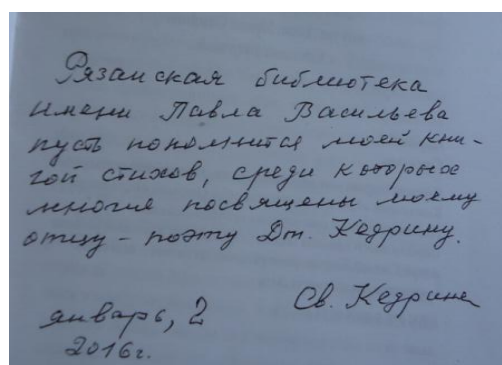 Рязанская библиотека
имени Павла Васильева
пусть пополнится моей кни-
гой стихов, среди которых
многие посвящены моему
отцу – поэту Дм. Кедрину.
Св. Кедрина
январь, 2
2016г.